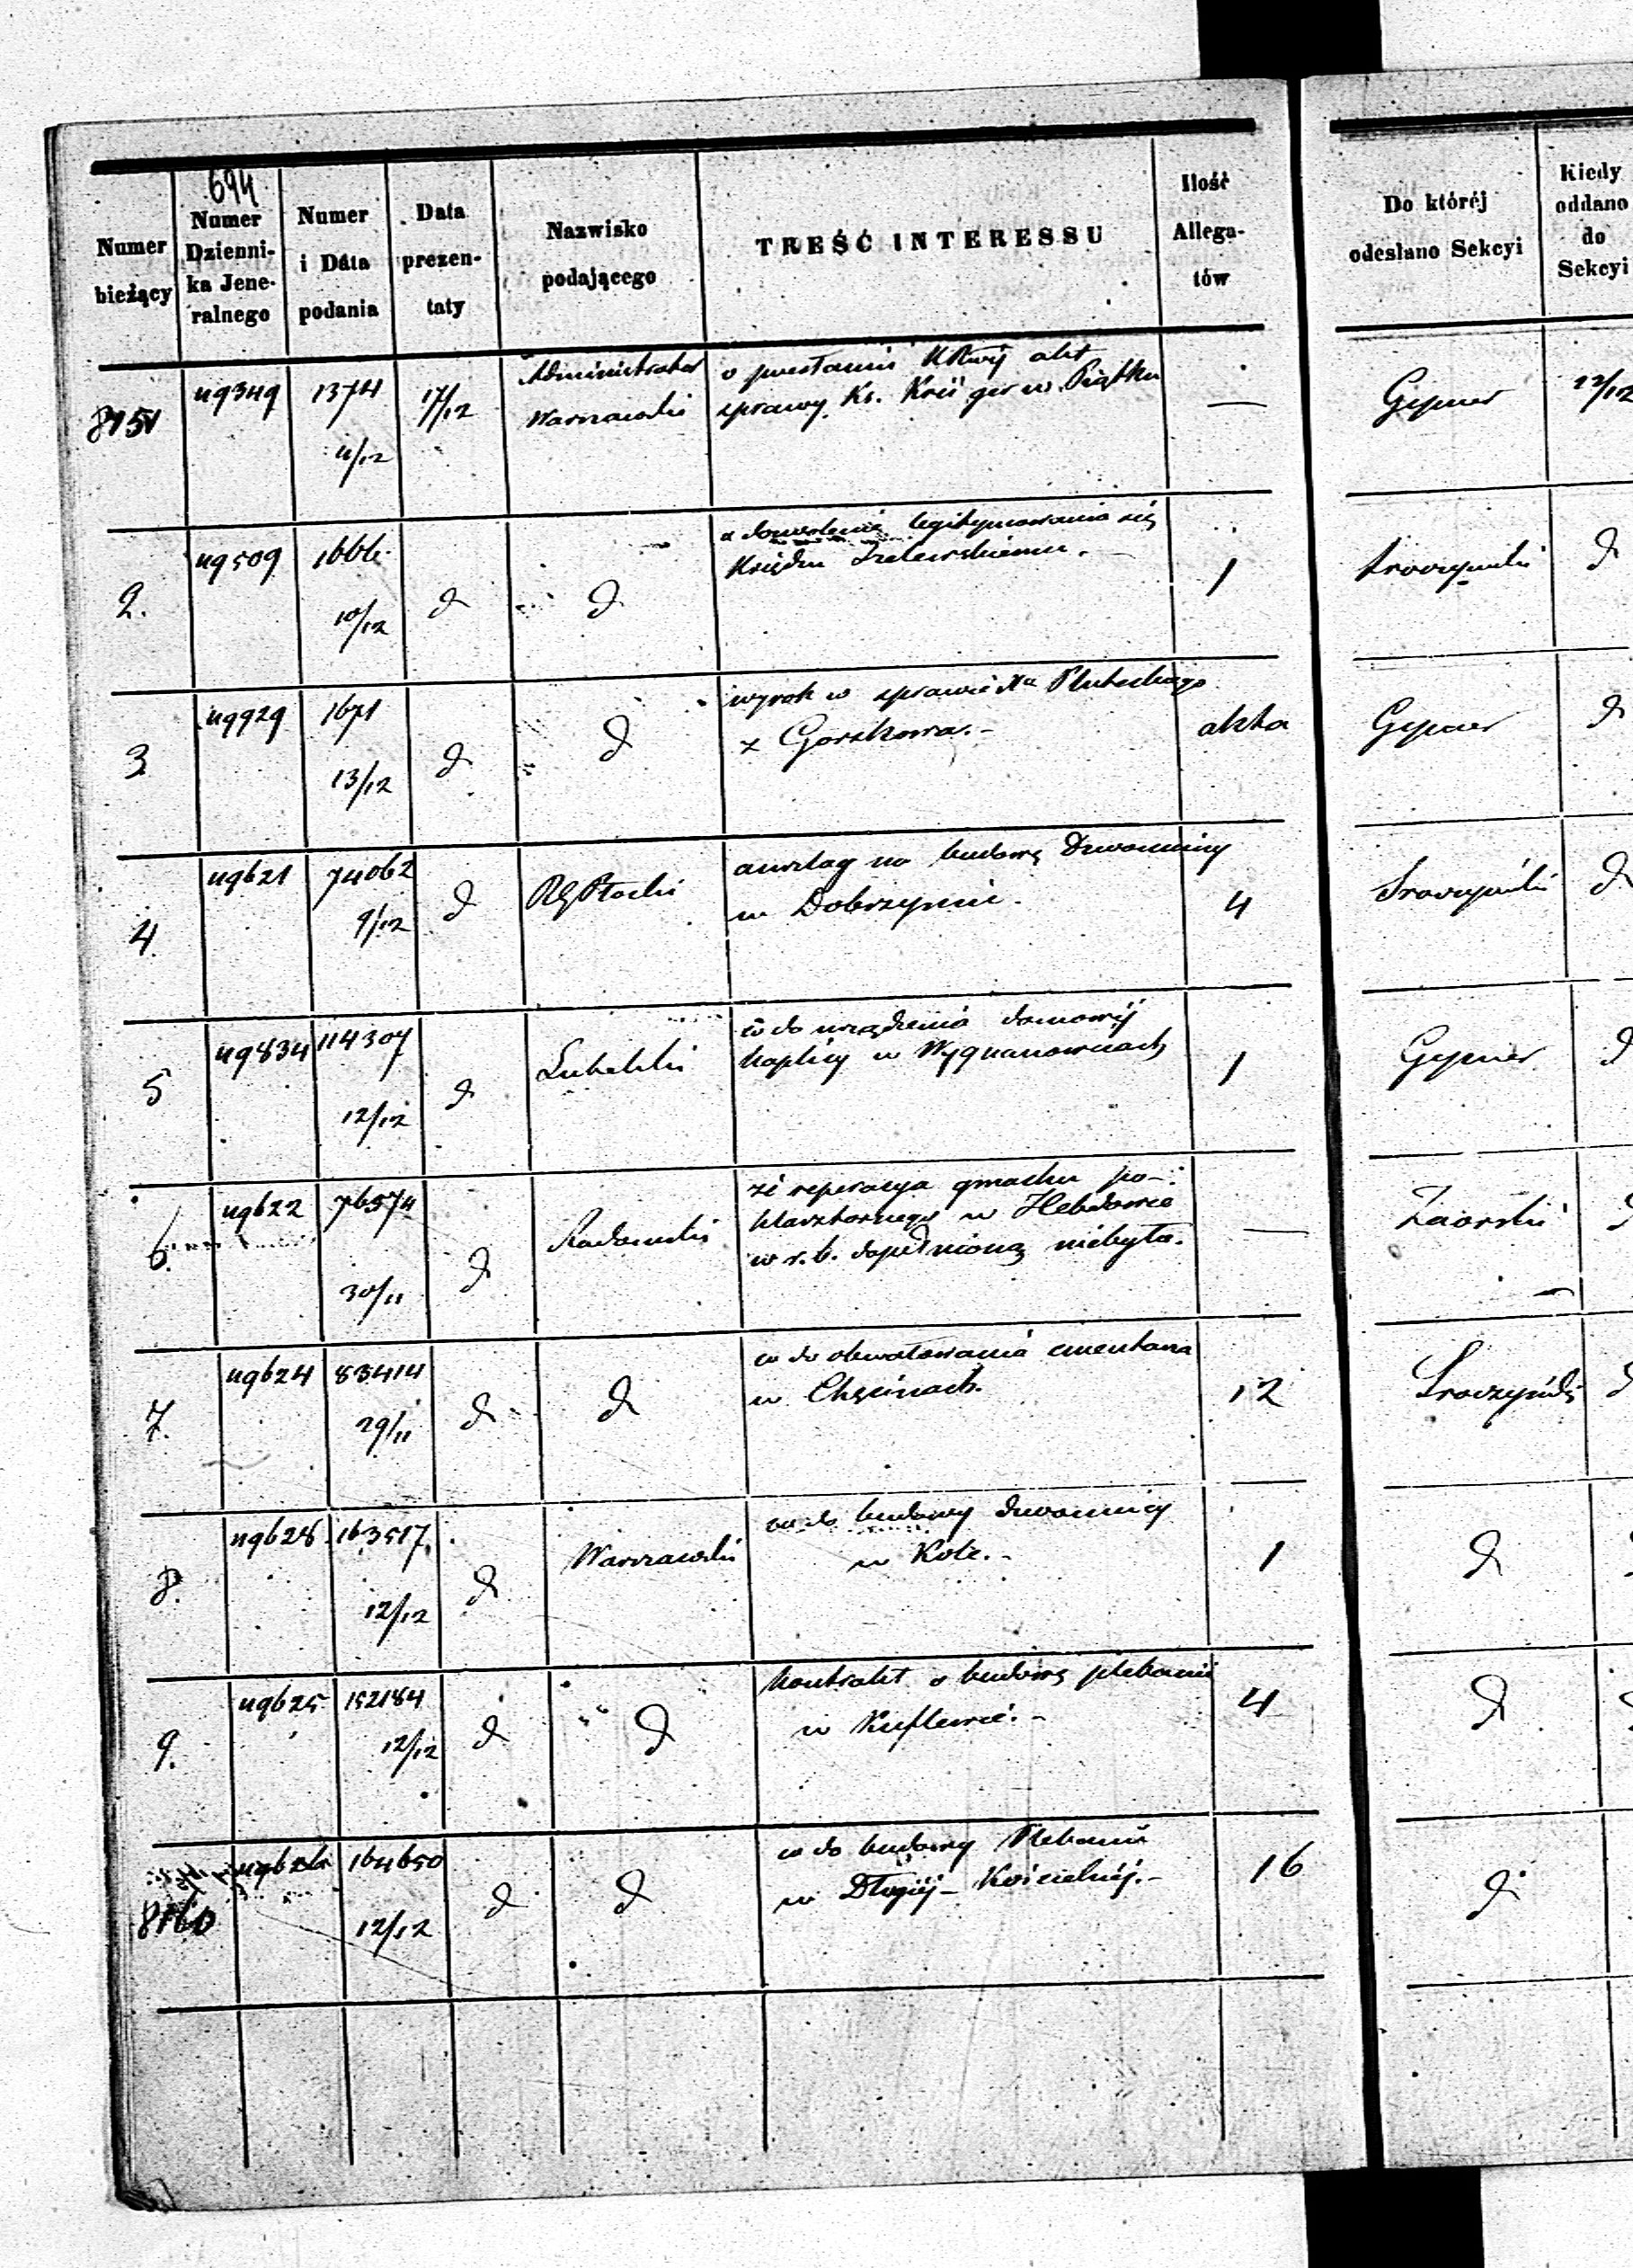 694
Numer bieżący
Numer Dziennika Jeneralnego
Numer i Data podania
Data prezentaty
Nazwisko podającego
TREŚĆ INTERESSU
Ilość Allegatów
Do któréj odesłano Sekcyi
Kiedy oddano do Sekcyi
8151 119349 1374 11/12 17/12 Administrator Warszawski
o przesłanie akt
sprawy Ks. w Piątku
— Gepner 22/12
2. 119509 10/12 d d
legitymowania się
Księdzu
1 d
3 119929 1671 13/12 d d
wyrok w sprawie
z Gorzkowa.-
akta Gepner d
4. 119621 74062 9/12 d RG Płocki
anszlag na budowę Dzwonnicy
w Dobrzyniu.
4 Sroczyński d
5 119834 114307 12/12 d Lubelski
co do urządzenia domowéj
kaplicy w Wygnanowicach
1 Gepner d
6. 119622 76574 30/11 d Radomski
że reperacya gmachu po-
klasztornego w Hebdowie
w r. b. dopełnioną niebyła.
— Zaorski d
7. 119624 83414 29/11 d d
co do obwałowania cmentarza
w Chęcinach.
12 Sroczyński d
8. 119628 163517 12/12 d Warszawski
co do budowy dzwonnicy
w Kole.-
1 d
9. 119625 152184 12/12 d d
kontrakt o budowę plebanii
w Kuflewie.-
4 d
8160 164650 12/12 d d
co do budowy Plebanii
w Długiéj-Kościelnéj.-
16 d